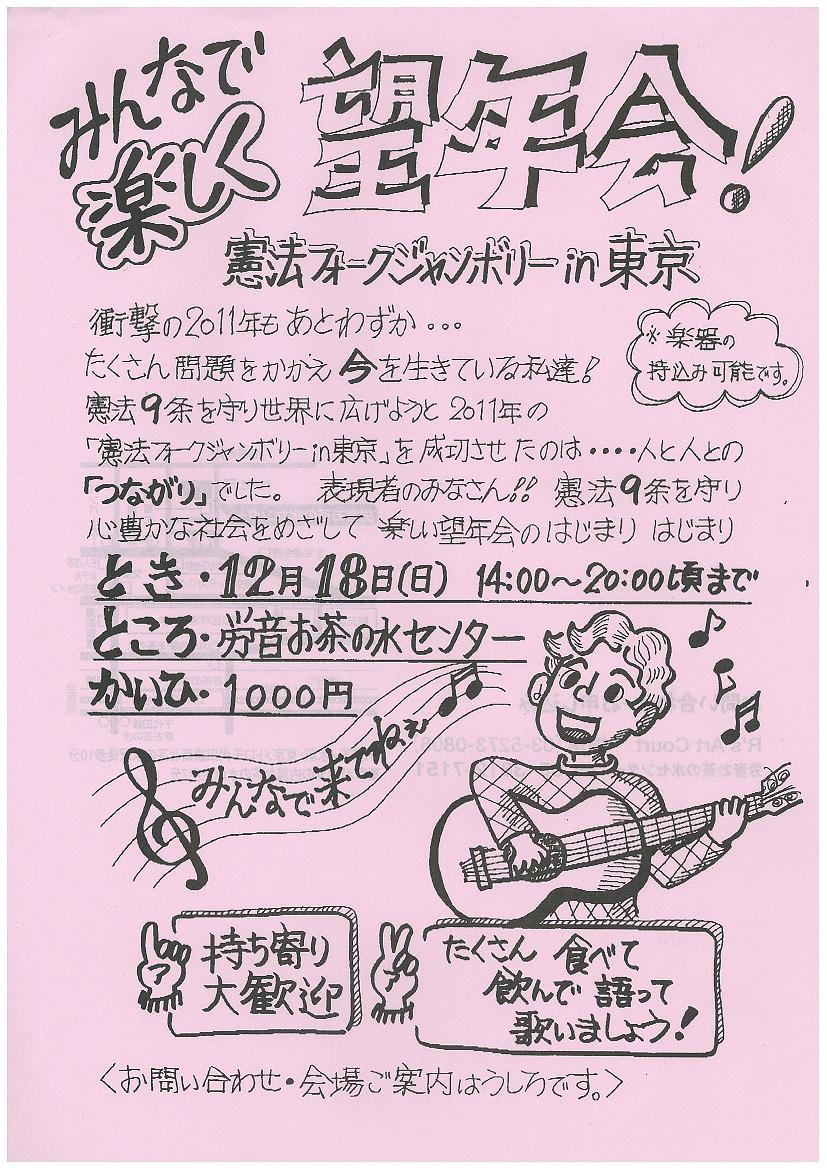 みんなで
楽しく
望年会!
憲法フォークジャンボリー in 東京
衝撃の2011年もあとわずか・・・
たくさん問題をかかえ今を生きている私達!
※楽器の
持込み可能です。
憲法9条を守り世界に広げようと2011年の
「憲法フォークジャンボリー in 東京」を成功させたのは・・・・人と人との
「つながり」でした。 表現者のみなさん!! 憲法9条を守り
心豊かな社会をめざして 楽しい望年会のはじまり はじまり
とき・12月18日(日) 14:00〜20:00頃まで
ところ・労音お茶の水センター
かいひ・1000円
みんなで来てねぇ
持ち寄り
大歓迎
たくさん 食べて
飲んで 語って
歌いましょう!
〈お問い合わせ・会場ご案内はうしろです。〉